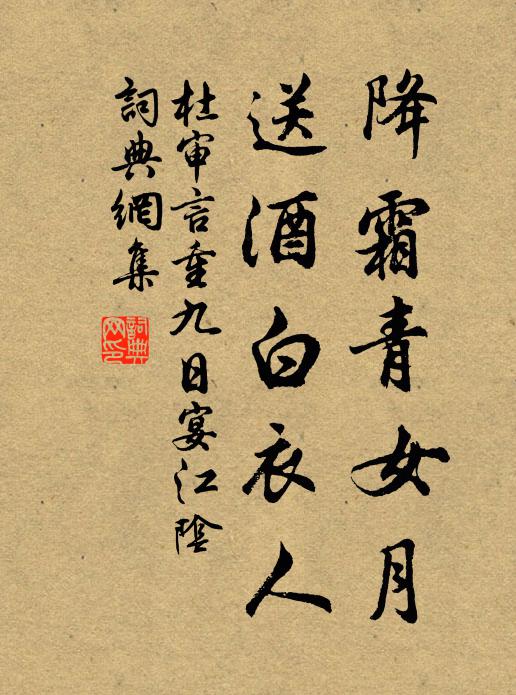 降霜青女月
送酒白衣人
杜审言重九日宴江陰
詞典網集
詞典网印